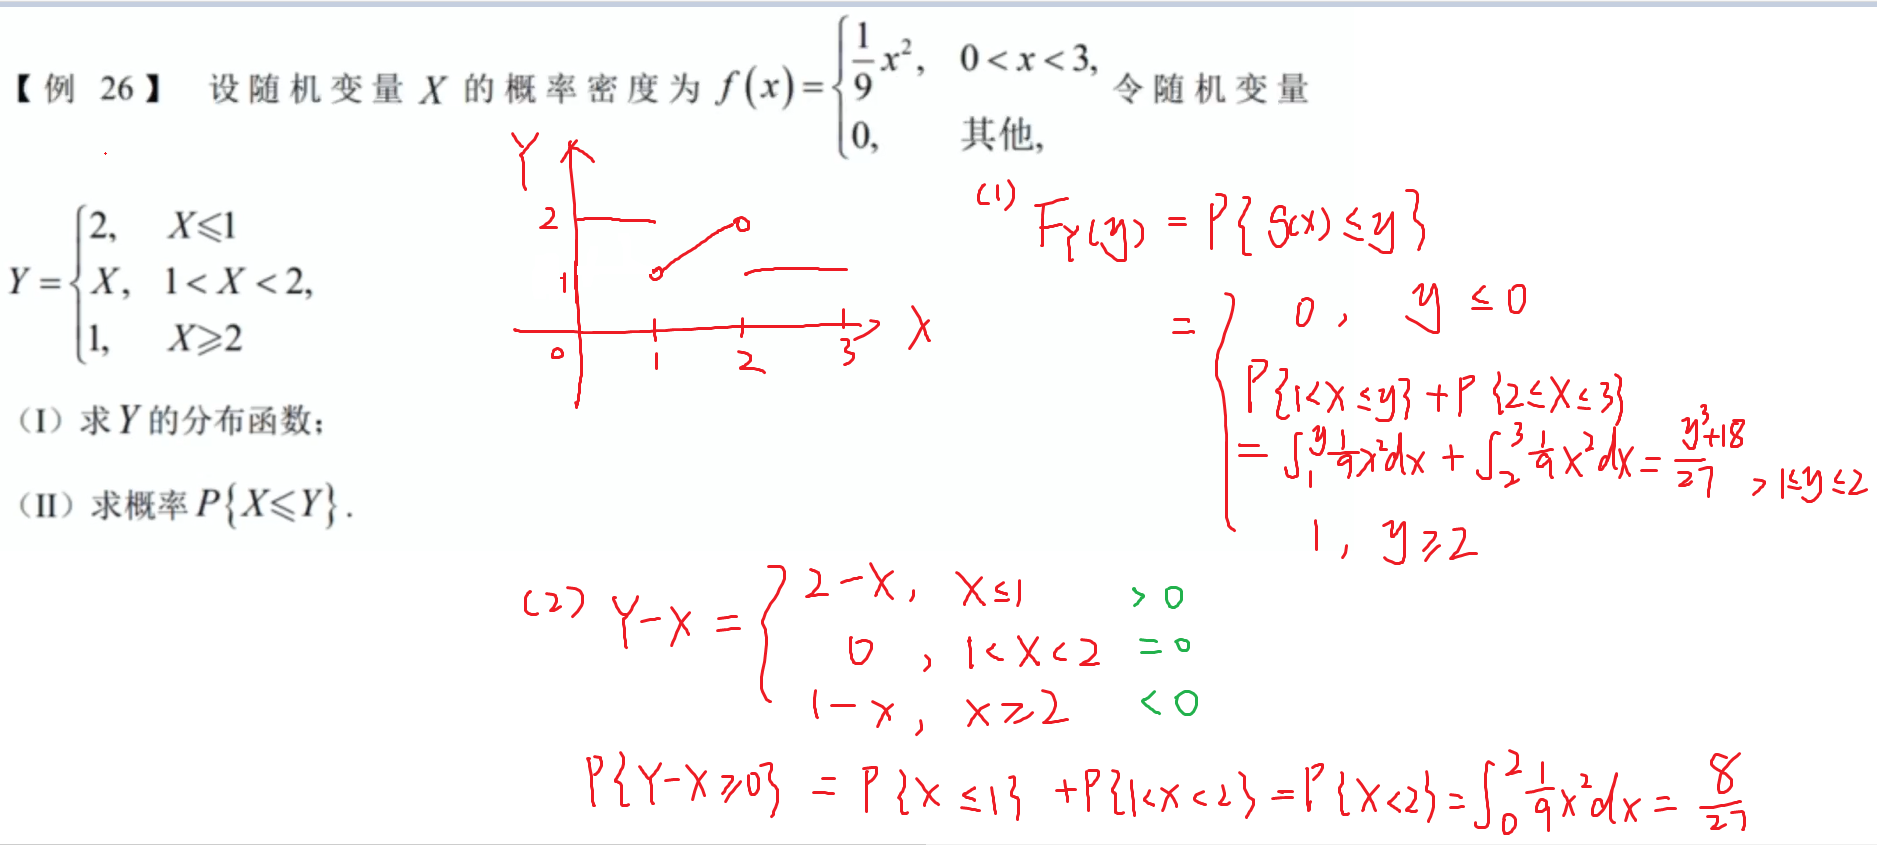 【例 26】 设随机变量 X 的概率密度为 f(x)={1/9 x², 0<x<3, 0, 其他, 令随机变量
Y={2, X⩽1
X, 1<X<2,
1, X⩾2
(I) 求 Y 的分布函数;
(II) 求概率 P{X⩽Y}.
Y
2
1
0 1 2 3 X
(1) F_Y(y) = P{g(x)≤y}
= { 0, y≤0
P{1<X≤y}+P{2≤X≤3}
=∫₁^y 1/9 x²dx + ∫₂³ 1/9 x²dx = (y³+18)/27, 1≤y≤2
1, y⩾2
(2) Y-X = { 2-X, X≤1 >0
0, 1<X<2 =0
1-x, x⩾2 <0
P{Y-X⩾0} = P{X≤1} +P{1<X<2}=P{X<2}=∫₀² 1/9 x²dx = 8/27